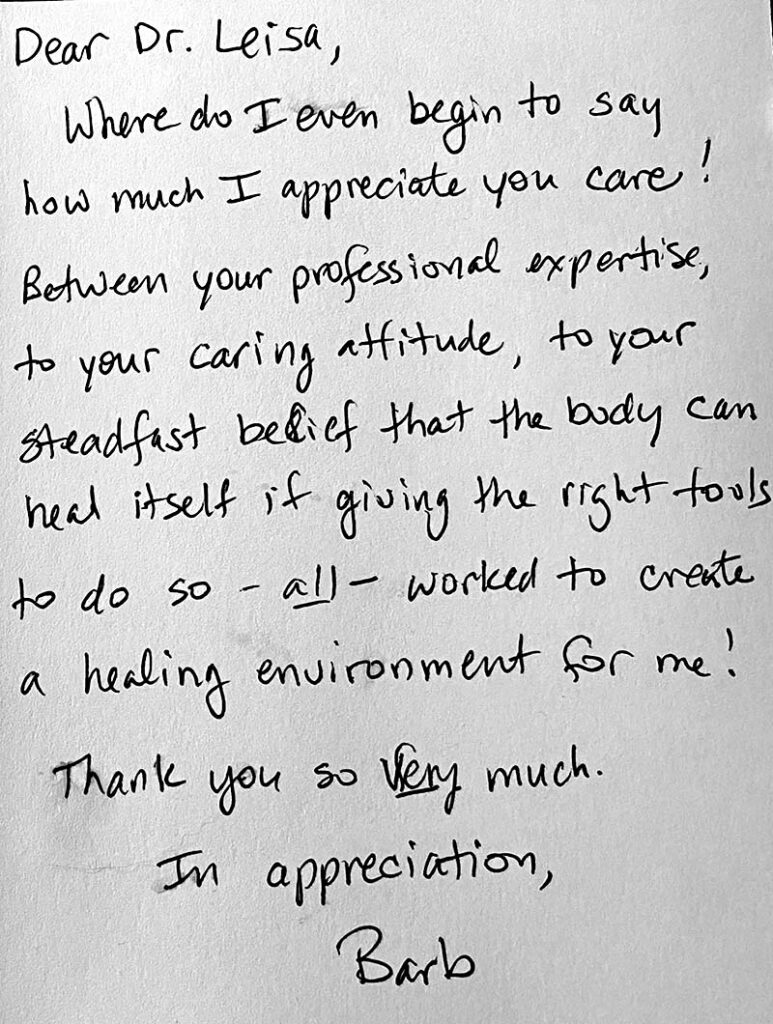 Dear Dr. Leisa,
Where do I even begin to say
how much I appreciate you care!
Between your professional expertise,
to your caring attitude, to your
steadfast belief that the body can
heal itself if giving the right tools
to do so - all - worked to create
a healing environment for me!
Thank you so very much.
In appreciation,
Barb